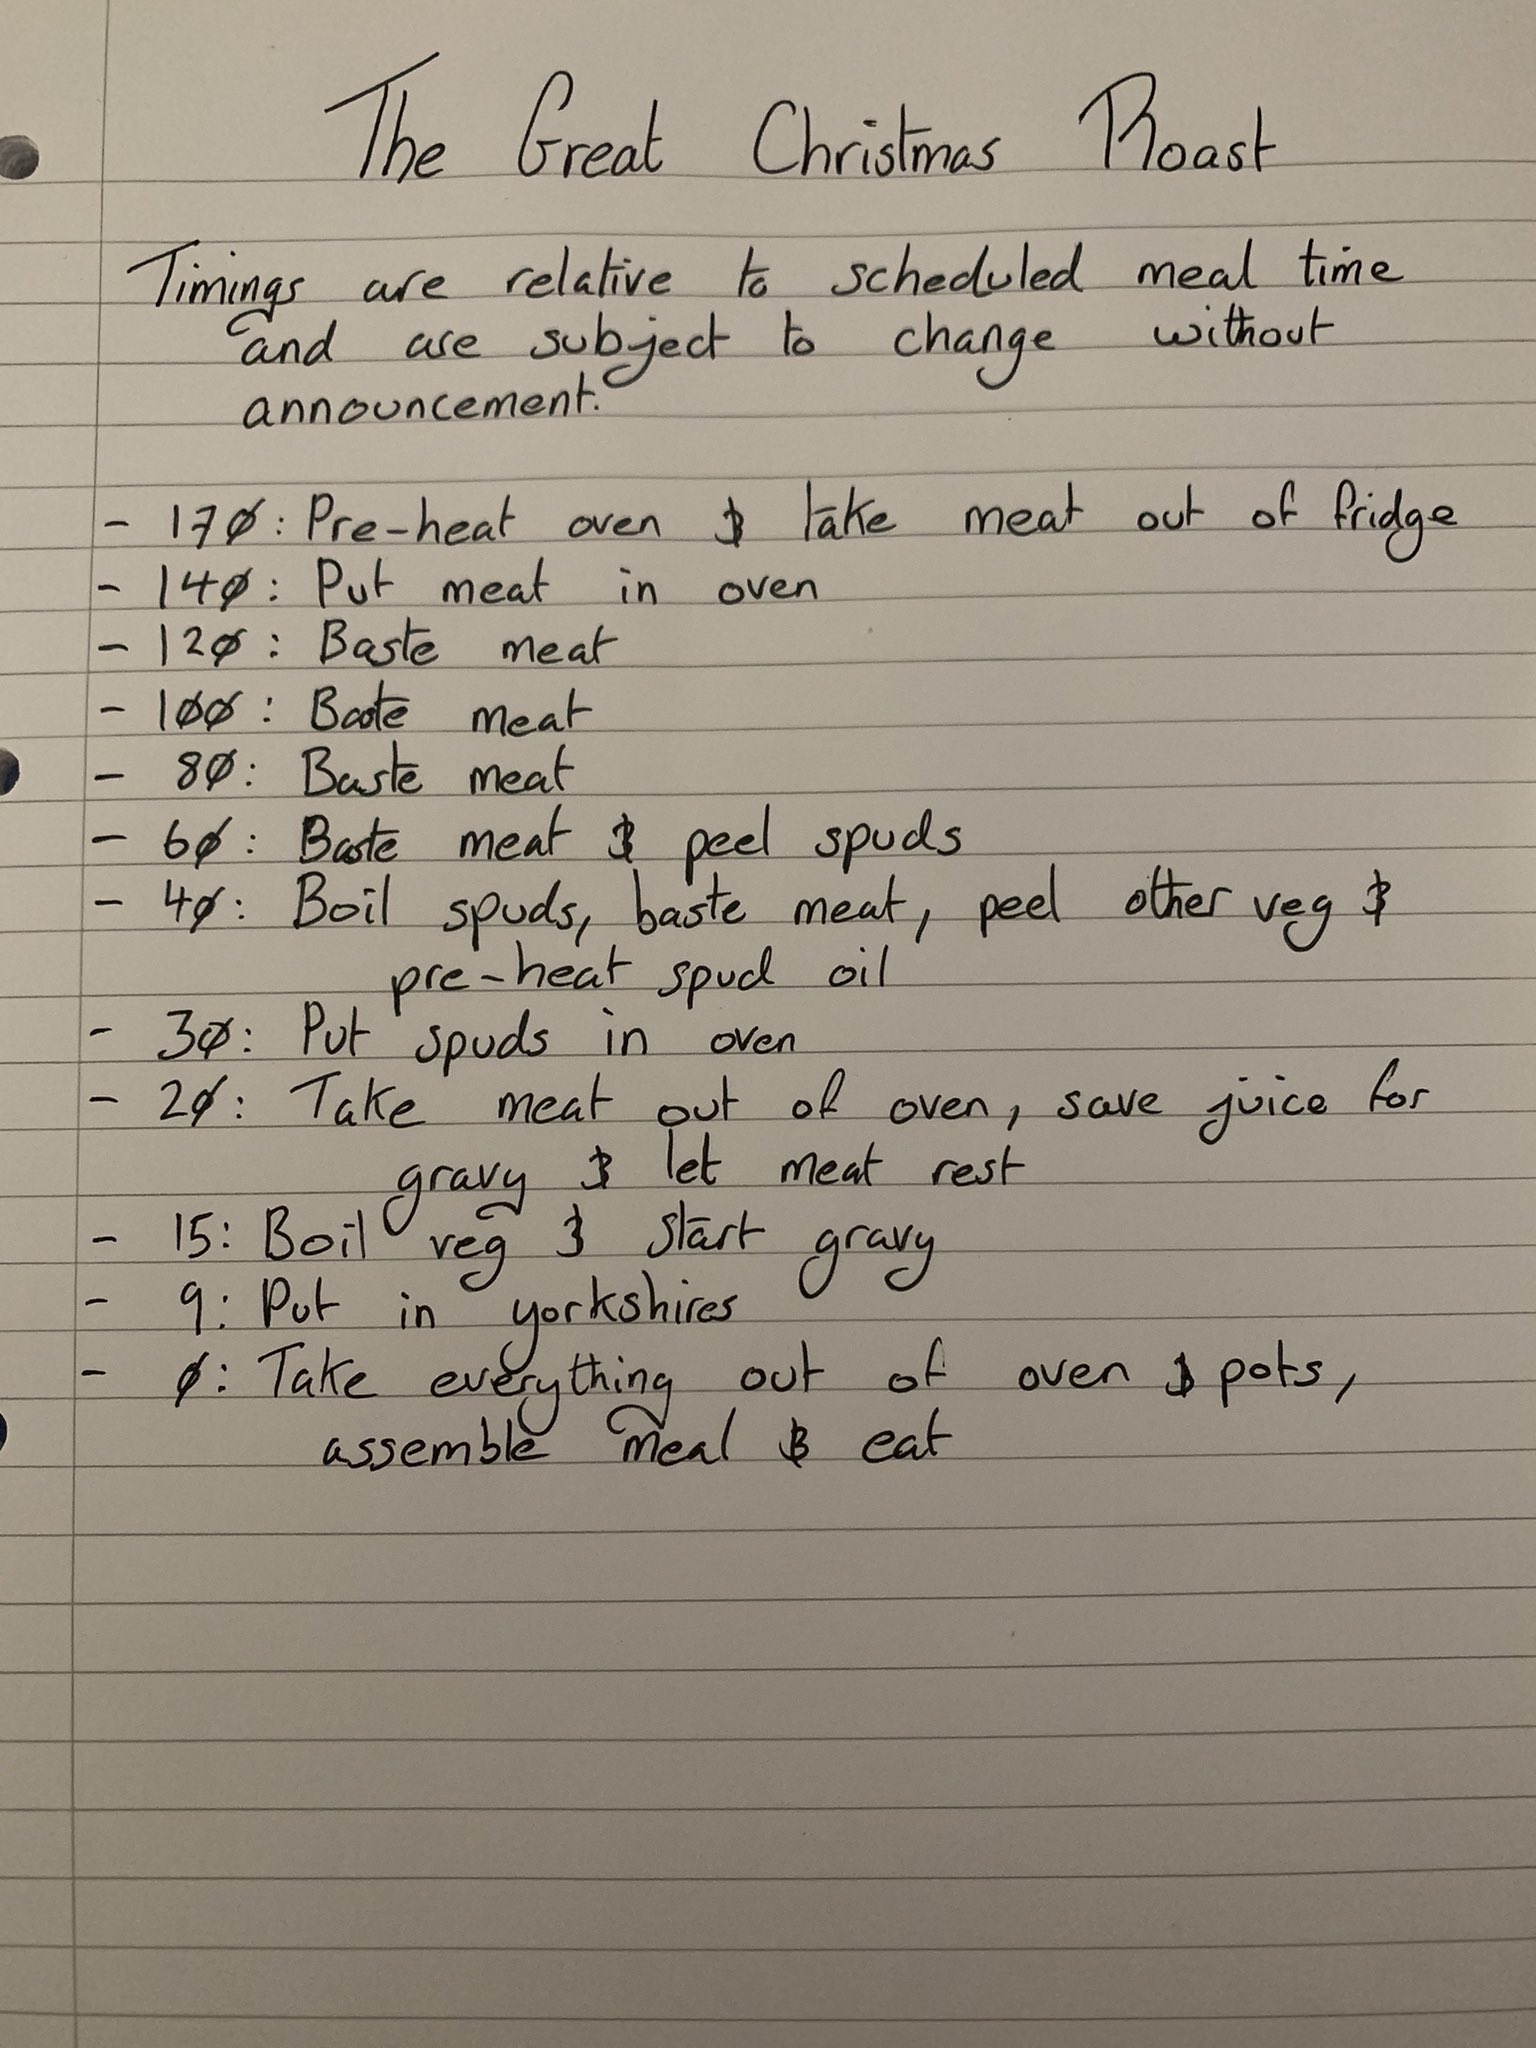 The Great Christmas Roast
Timings are relative to scheduled meal time
and are subject to change without
announcement.
- 170: Pre-heat oven & take meat out of fridge
- 140: Put meat in oven
- 120: Baste meat
- 100: Baste meat
- 80: Baste meat
- 60: Baste meat & peel spuds
- 40: Boil spuds, baste meat, peel other veg &
pre-heat spud oil
- 30: Put spuds in oven
- 20: Take meat out of oven, save juice for
gravy & let meat rest
- 15: Boil veg & start gravy
- 9: Put in yorkshires
- 0: Take everything out of oven & pots,
assemble meal & eat